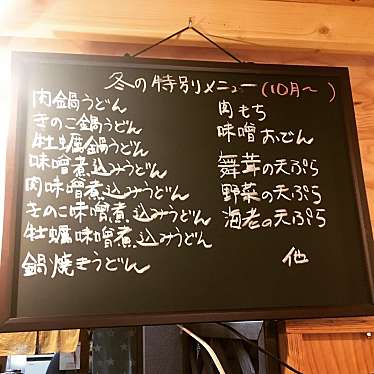 冬の特別メニュー(10月〜)
肉鍋うどん
きのこ鍋うどん
牡蠣鍋うどん
味噌煮込みうどん
肉味噌煮込みうどん
きのこ味噌煮込みうどん
牡蠣味噌煮込みうどん
鍋焼きうどん
肉もち
味噌おでん
舞茸の天ぷら
野菜の天ぷら
海老の天ぷら
他